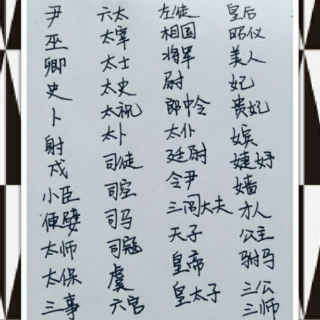 尹
巫
卿
史
卜
射
戍
小臣
便嬖
太师
太保
三事
六太
太宰
太士
太史
太祝
太卜
司徒
司空
司马
司寇
虞
六官
左徒
相国
将军
尉
郎中令
太仆
廷尉
令尹
三闾大夫
天子
皇帝
皇太子
皇后
昭仪
美人
妃
贵妃
嫔
婕妤
嫱
才人
公主
驸马
三公
三师